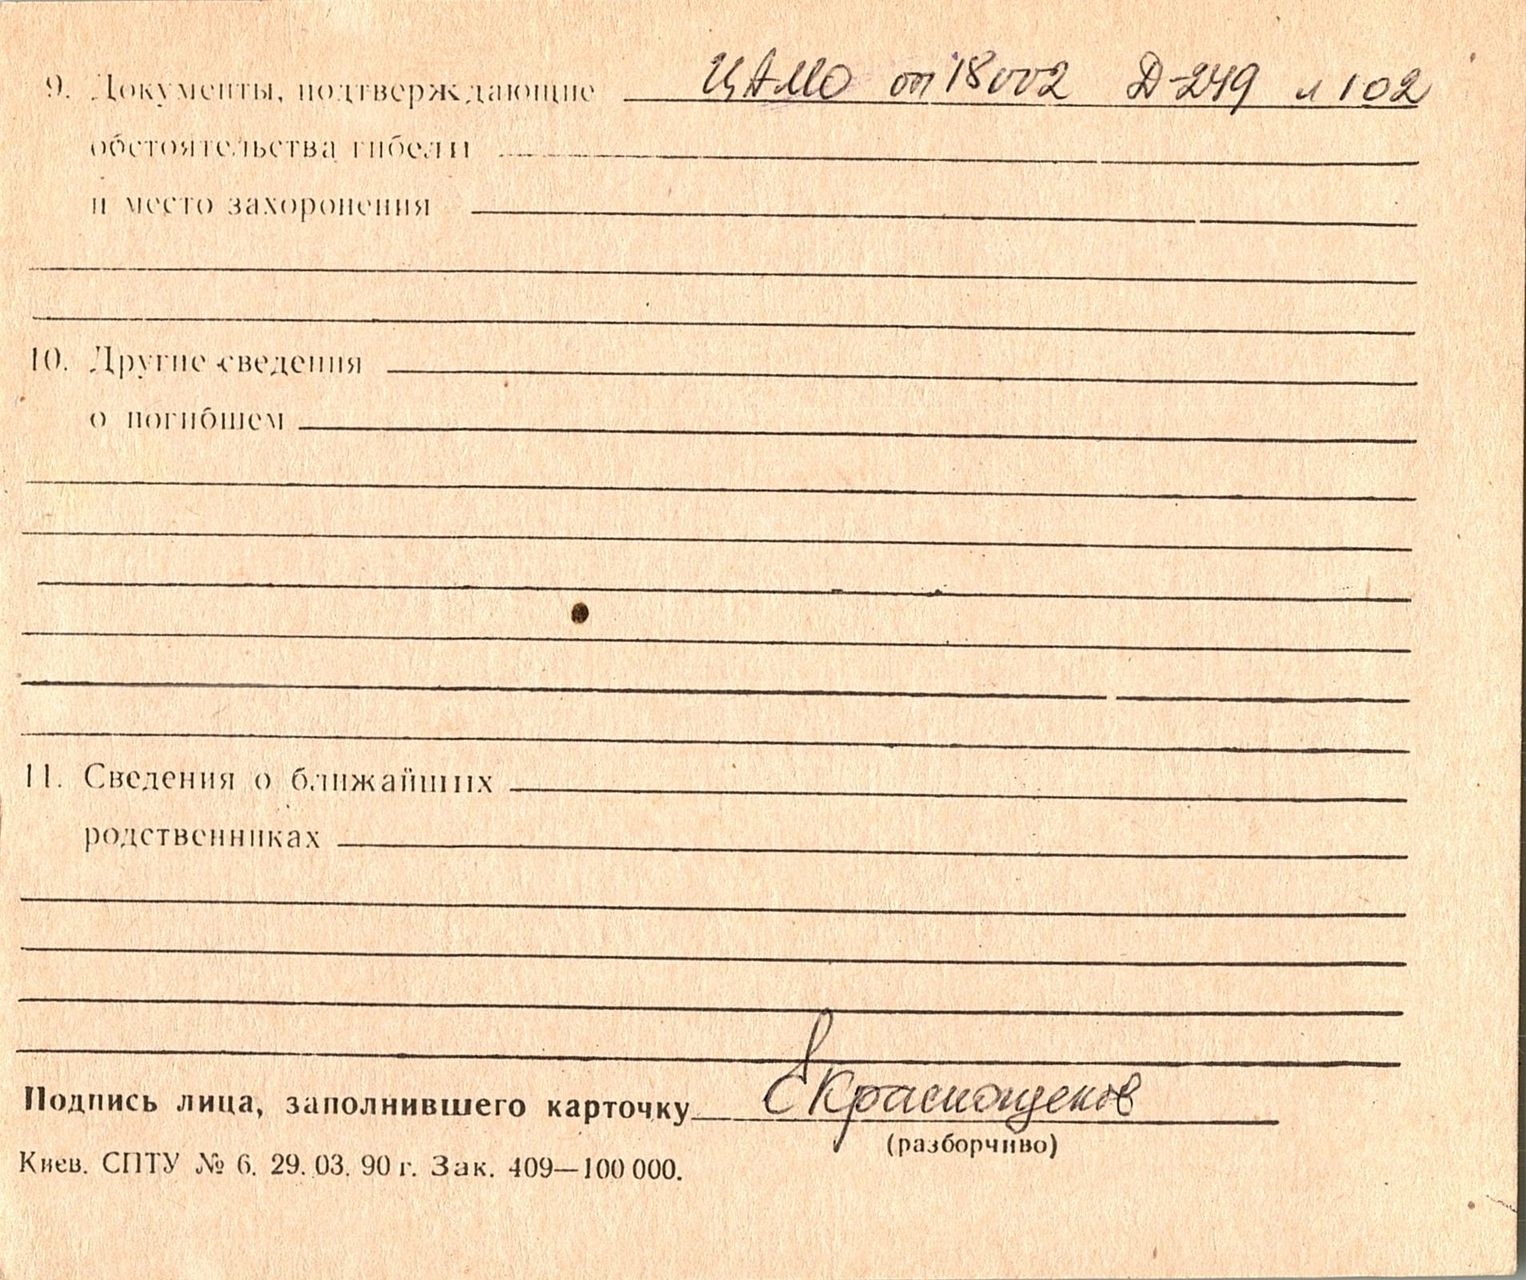 9. Документы, подтверждающие ЦАМО оп 18002 Д-249 л 102
обстоятельства гибели
и место захоронения
10. Другие сведения
о погибшем
11. Сведения о ближайших
родственниках
Подпись лица, заполнившего карточку Краснощеков
(разборчиво)
Киев. СПТУ № 6. 29. 03. 90 г. Зак. 409—100 000.